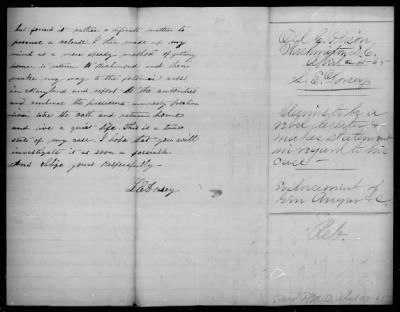 but found it rather a dificult matter to
procure a release. I then made up my
mind as a more speedy method of getting
home, to return to Richmond and from
make my way to the Potomac cross
in Maryland and report to the authorities
and embrace the presidents amnesty proclam
ation take the oath and return home
and live a quiet life. This is a true
state of my case. I hope that you will
investigate it as soon as possible.
And Oblige yours Respectfully
Old C. Prison
Washington D.C.
April 22d 65
Dorsey
Claims to be a
rebel deserter &
makes statement
in regard to his
case
Endorsement of
&c.
Reb.